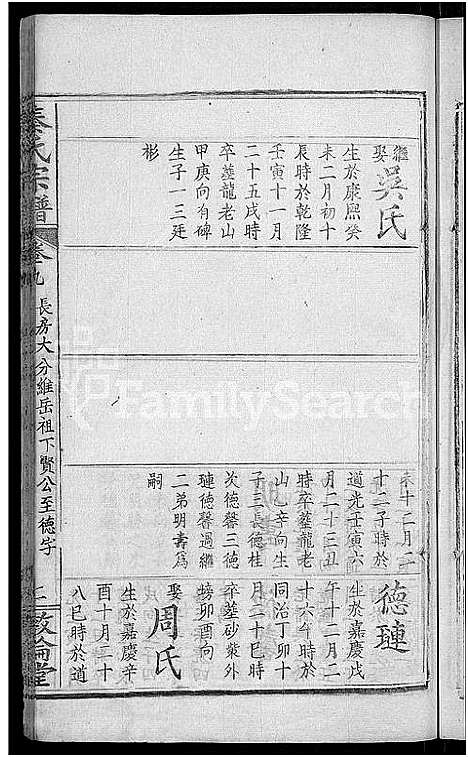 繼娶吳氏
生於康熙癸
未二月初十
辰時於乾隆
壬寅十一月
二十五戌時
卒塟龍老山
甲庚向有碑
生子一三廷
彬
未十二月二
十二子時於
道光壬寅六
月二十三丑
時卒塟龍老
山乙辛向生
子三長德桂
次德馨三德
璉德馨過繼
二弟明壽為
嗣
德璉
生於嘉慶戊
午十二月二
十六午時於
同治丁卯十
月二十巳時
卒塟砂藔外
塝卯酉向
娶周氏
生於嘉慶辛
酉十月二十
八巳時於道
秦氏宗譜
卷九
長房大分維岳祖下賢公至德字
敦倫堂
FamilySearch